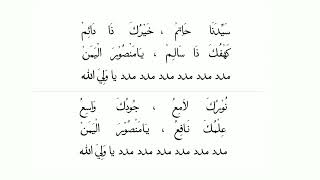 سَيِّدَنَا حَاتِمْ ، خَيْرُكَ ذَا دَائِمْ
كَهْفُكَ ذَا سَالِمْ ، يَامَنْصُوْرَ الْيَمَنْ
مدد مدد مدد مدد مدد مدد يا ولي الله
نُوْرُكَ لَامِعُ ، جُودُكَ وَاسِعُ
عِلْمُكَ نَافِعُ ، يَامَنْصُوْرَ الْيَمَنْ
مدد مدد مدد مدد مدد مدد يا ولي الله